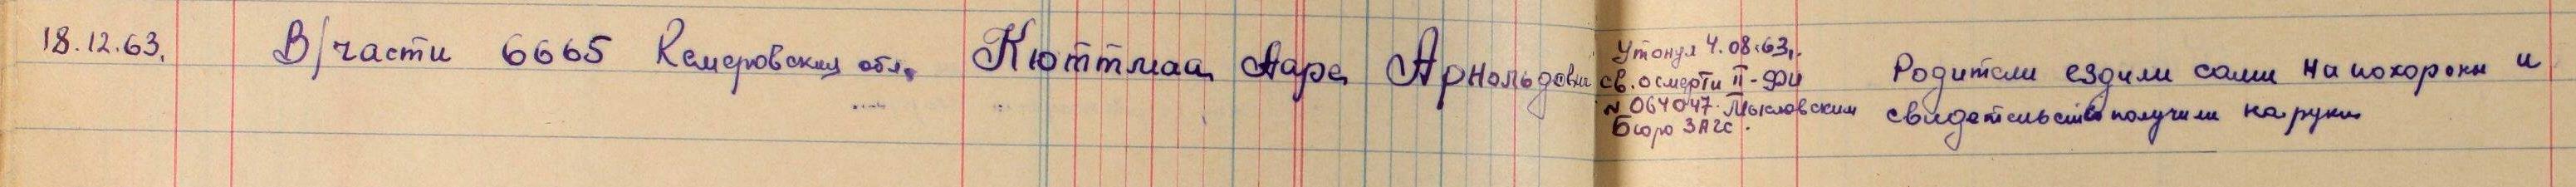 18.12.63. В/части 6665 Кемеровской обл. Кюттмаа Аарс Арнольдович
Утонул 4.08.63г.
св. о смерти II-ФИ
№ 064047. Мысковским
Бюро ЗАГС.
Родители ездили сами на похороны и
свидетельство получили на руки